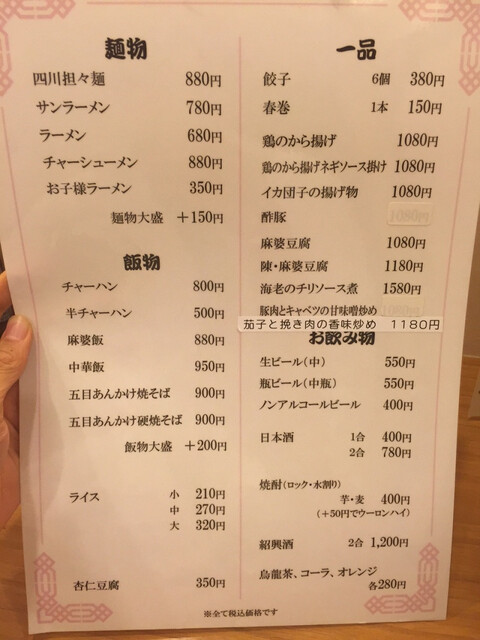 麺物
四川担々麺 880円
サンラーメン 780円
ラーメン 680円
チャーシューメン 880円
お子様ラーメン 350円
麺物大盛 +150円
飯物
チャーハン 800円
半チャーハン 500円
麻婆飯 880円
中華飯 950円
五目あんかけ焼そば 900円
五目あんかけ硬焼そば 900円
飯物大盛 +200円
ライス 小 210円
中 270円
大 320円
杏仁豆腐 350円
一品
餃子 6個 380円
春巻 1本 150円
鶏のから揚げ 1080円
鶏のから揚げネギソース掛け 1080円
イカ団子の揚げ物 1080円
酢豚 1080円
麻婆豆腐 1080円
陳・麻婆豆腐 1180円
海老のチリソース煮 1580円
豚肉とキャベツの甘味噌炒め
茄子と挽き肉の香味炒め 1180円
お飲み物
生ビール(中) 550円
瓶ビール(中瓶) 550円
ノンアルコールビール 400円
日本酒 1合 400円
2合 780円
焼酎(ロック・水割り)
芋・麦 400円
(+50円でウーロンハイ)
紹興酒 2合 1,200円
烏龍茶、コーラ、オレンジ
各280円
※全て税込価格です